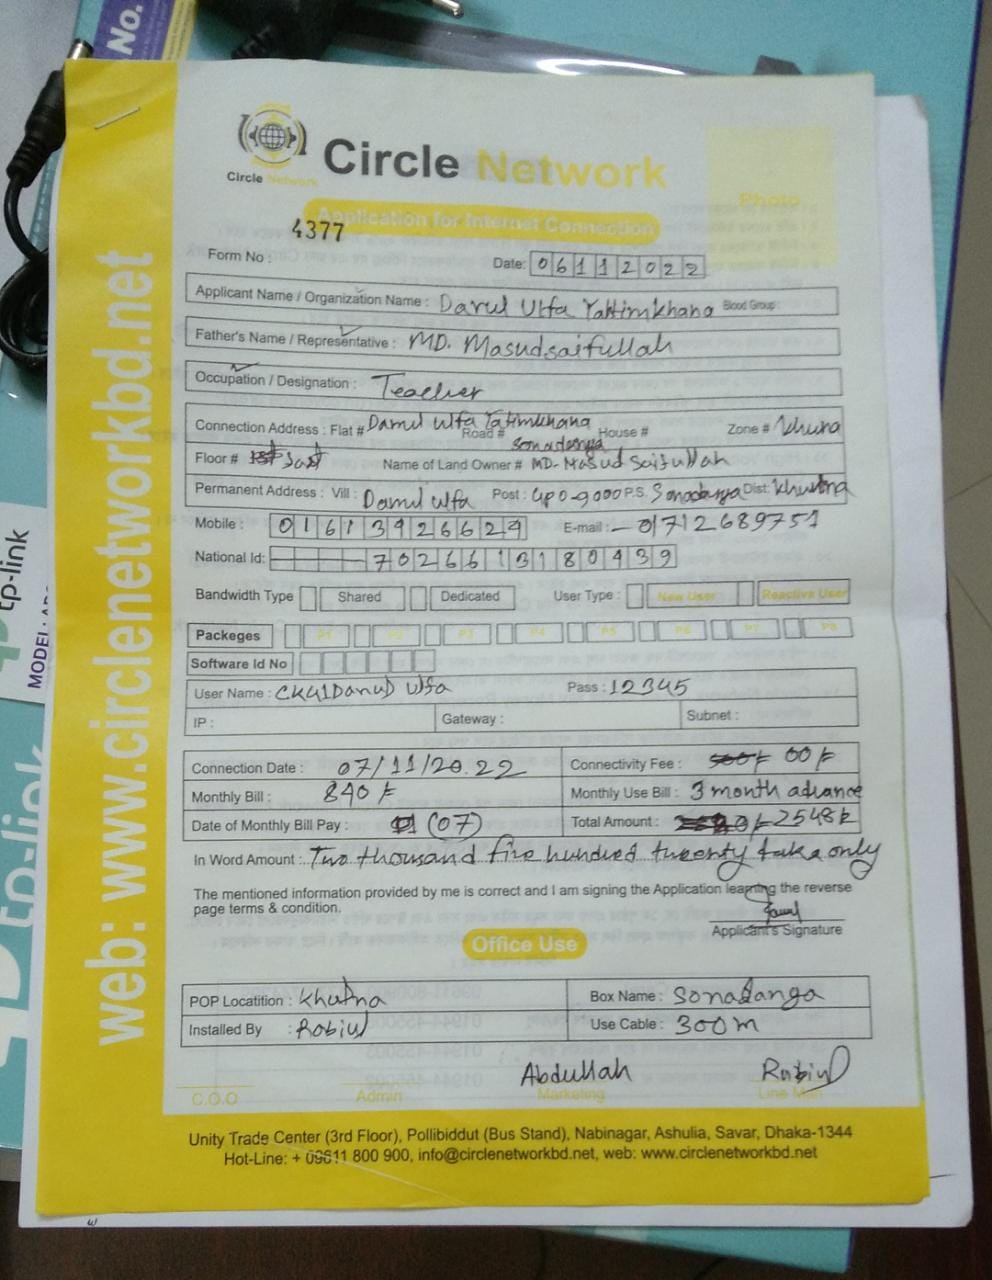 No.
tp-link
MODEL:
tp-link
web: www.circlenetworkbd.net
Circle Network
Circle Network
Photo
Application for Internet Connection
4377
Form No :
Date: 06112022
Applicant Name / Organization Name : Darul Ulfa Yatimkhana Blood Group:
Father's Name / Representative : MD. Masudsaifullah
Occupation / Designation : Teacher
Connection Address : Flat # Darul Ulfa Yatimkhana Road # Sonadanga House # Zone # Khulna
Floor # Name of Land Owner # MD. Masud Saifullah
Permanent Address : Vill : Darul Ulfa Post : GPO-9000 P.S. Sonadanga Dist: Khulna
Mobile : 01613926629 E-mail :- 01712689751
National Id: 7026613180439
Bandwidth Type Shared Dedicated User Type : New User Reactive User
Packeges P1 P2 P3 P4 P5 P6 P7 P8
Software Id No
User Name : Ulfa Pass : 12345
IP : Gateway : Subnet :
Connection Date : 07/11/20.22 Connectivity Fee : 00/-
Monthly Bill : 840/- Monthly Use Bill : 3 month advance
Date of Monthly Bill Pay : (07) Total Amount : 2548/-
In Word Amount : Two thousand five hundred twenty taka only
The mentioned information provided by me is correct and I am signing the Application learning the reverse
page terms & condition.
Applicant's Signature
Office Use
POP Locatition : Khulna Box Name : Sonadanga
Installed By : Robiul Use Cable : 300m
Abdullah Robiul
C.O.O Admin Marketing Line Man
Unity Trade Center (3rd Floor), Pollibiddut (Bus Stand), Nabinagar, Ashulia, Savar, Dhaka-1344
Hot-Line: + 09611 800 900, info@circlenetworkbd.net, web: www.circlenetworkbd.net